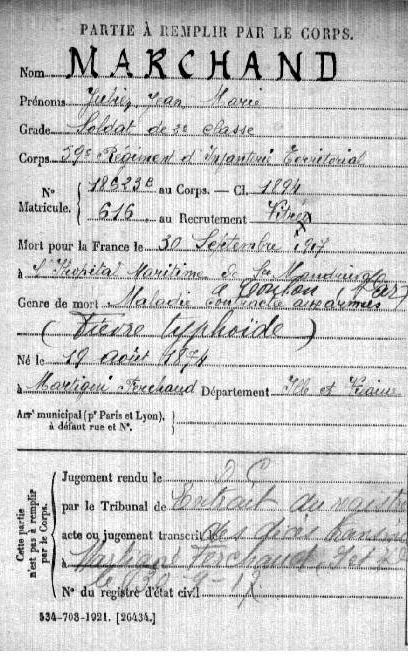 PARTIE À REMPLIR PAR LE CORPS.
Nom MARCHAND
Prénoms Jean Marie
Grade Soldat de 2e classe
Corps Régiment d'Infanterie Territorial
N° Matricule. { au Corps. — Cl. 1894
616 au Recrutement Vitré
Mort pour la France le 30 Septembre 1917
à l'Hopital Maritime de St Mandrier
à Toulon (Var)
Genre de mort Maladie Contractée aux armées
(Fièvre typhoïde)
Né le 19 août 1874
à Martigné Ferchaud Département Ille et Vilaine
Arrt municipal (pr Paris et Lyon), à défaut rue et N°. }
Cette partie n'est pas à remplir par le Corps.
Jugement rendu le
par le Tribunal de Extrait du registre
acte ou jugement transcrit le des décès
à Ferchaud
le
N° du registre d'état civil
534-708-1921. [26434.]